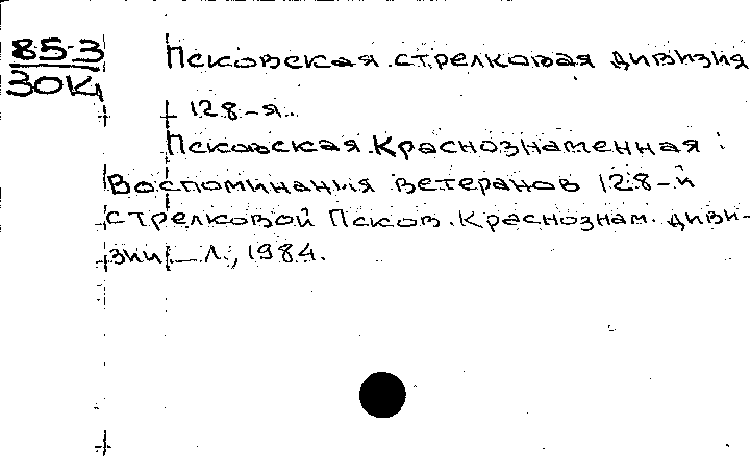 85-3
30К
Псковская стрелковая дивизия
128-я.
Псковская Краснознаменная:
Воспоминания ветеранов 128-й
стрелковой Псков. Краснознам. диви-
зии_ Л., 1984.